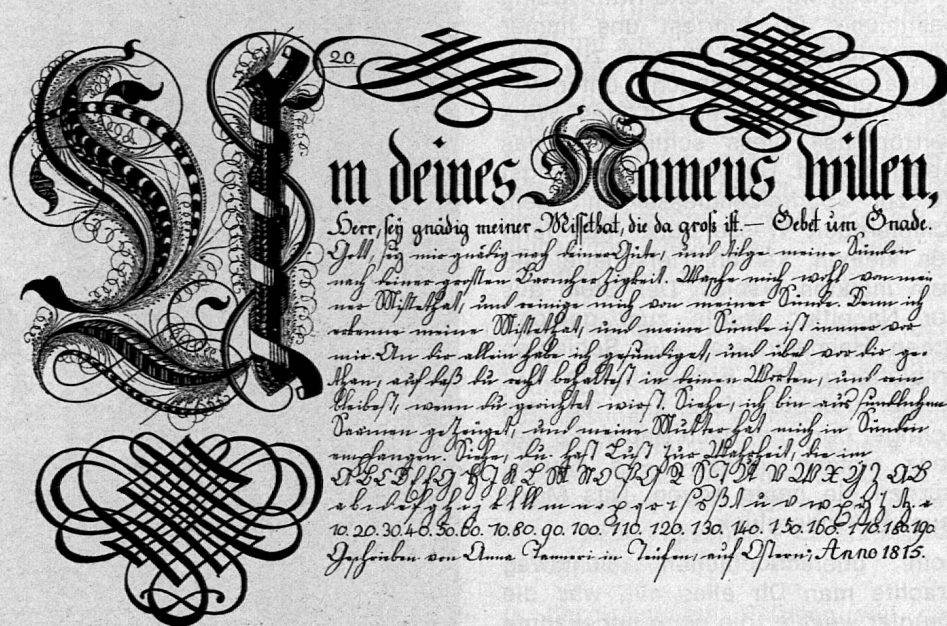 20.
Um deines Namens willen,
Herr, sey gnädig meiner Missethat, die da groß ist. — Gebet um Gnade.
Gott, sey mir gnädig nach deiner Güte, und tilge meine Sünden
nach deiner großen Barmherzigkeit. Wasche mich wohl von mei
ner Missethat, und reinige mich von meiner Sünde. Denn ich
erkenne meine Missethat, und meine Sünde ist immer vor
mir. An dir allein habe ich gesündiget, und übel vor dir ge-
than, auf daß du recht behaltest in deinen Worten, und rein
bleibest, wenn du gerichtet wirst. Siehe, ich bin aus sündlichem
Saamen gezeuget, und meine Mutter hat mich in Sünden
empfangen. Siehe, du hast Lust zur Wahrheit, die im
A B C D E F G H I K L M N O P Q R S T U V W X Y Z A B
a b c d e f g h i j k l m n o p q r s ß t u v w x y z
10. 20. 30. 40. 50. 60. 70. 80. 90. 100. 110. 120. 130. 140. 150. 160. 170. 180. 190.
Geschrieben von Anna Tanneri in Teufen, auf Ostern, Anno 1815.